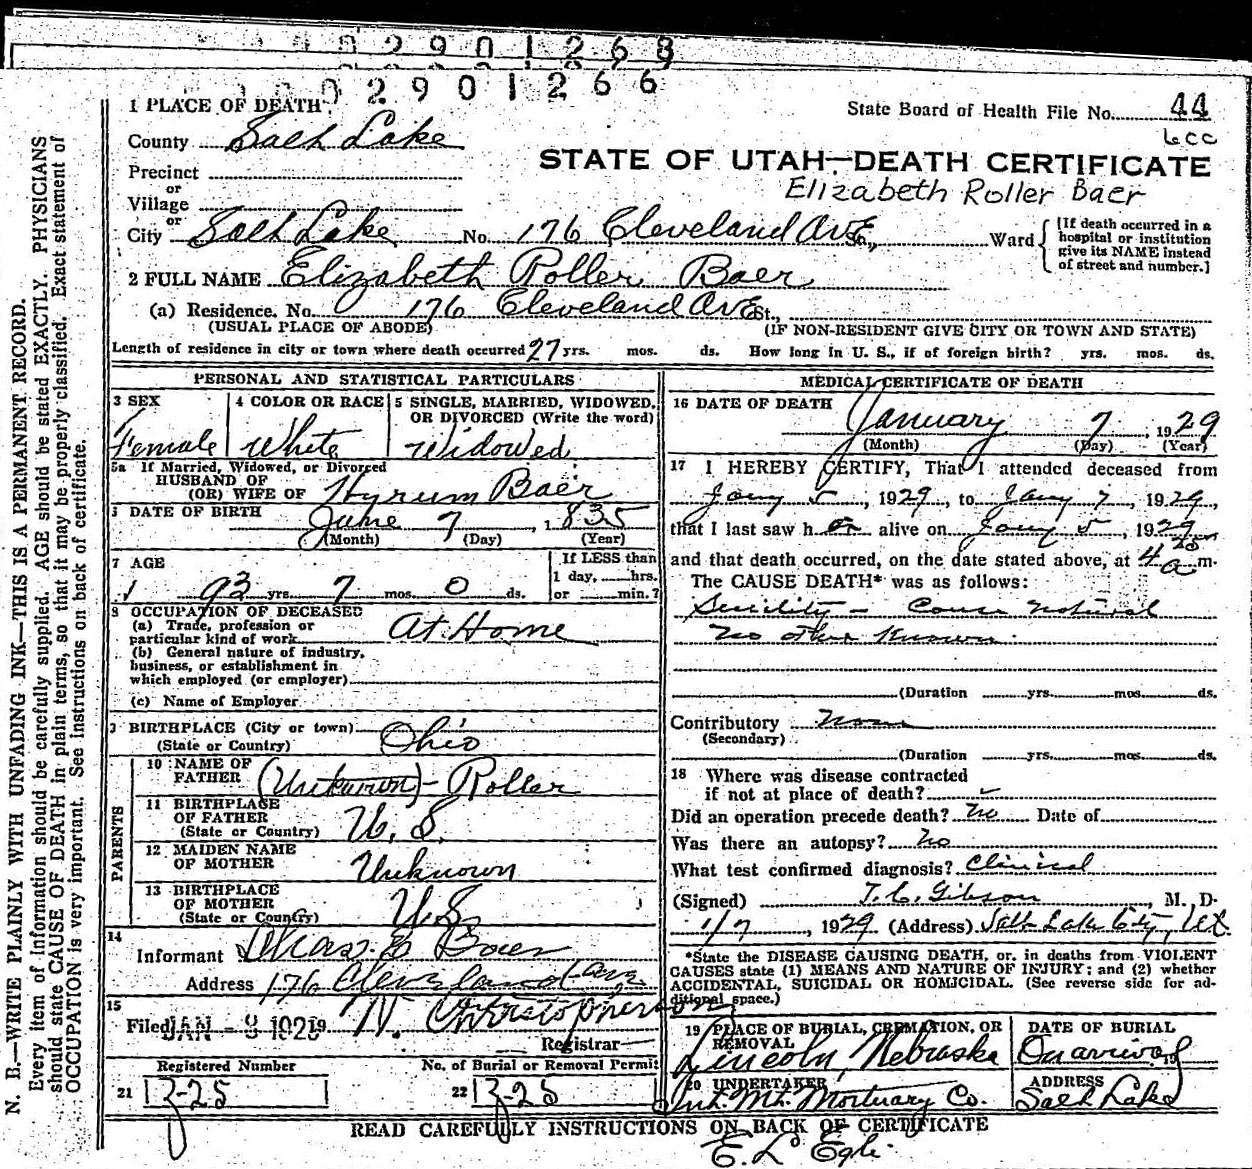 8 2 9 0 1 2 6 8
0 2 9 0 1 2 6 6
1 PLACE OF DEATH
State Board of Health File No. 44
County Salt Lake
6cc
STATE OF UTAH—DEATH CERTIFICATE
Precinct
or
Elizabeth Roller Baer
Village
or
City Salt Lake No. 176 Cleveland Ave St., Ward
[If death occurred in a
hospital or institution
give its NAME instead
of street and number.]
2 FULL NAME Elizabeth Roller Baer
(a) Residence. No. 176 Cleveland Ave St.,
(USUAL PLACE OF ABODE) (IF NON-RESIDENT GIVE CITY OR TOWN AND STATE)
Length of residence in city or town where death occurred 27 yrs. mos. ds. How long in U. S., if of foreign birth? yrs. mos. ds.
PERSONAL AND STATISTICAL PARTICULARS
3 SEX
Female
4 COLOR OR RACE
White
5 SINGLE, MARRIED, WIDOWED,
OR DIVORCED (Write the word)
Widowed
5a If Married, Widowed, or Divorced
HUSBAND OF
(OR) WIFE OF Hyrum Baer
DATE OF BIRTH June 7, 1835
(Month) (Day) (Year)
7 AGE
93 yrs. 7 mos. 0 ds.
If LESS than
1 day, hrs.
or min.?
8 OCCUPATION OF DECEASED
(a) Trade, profession or
particular kind of work At Home
(b) General nature of industry,
business, or establishment in
which employed (or employer)
(c) Name of Employer
BIRTHPLACE (City or town)
(State or Country) Ohio
PARENTS
10 NAME OF
FATHER (Unknown) - Roller
11 BIRTHPLACE
OF FATHER
(State or Country) U. S.
12 MAIDEN NAME
OF MOTHER Unknown
13 BIRTHPLACE
OF MOTHER
(State or Country) U.S.
14
Informant Chas. E Baer
Address 176 Cleveland Ave
15
Filed JAN - 8 1929 19 N. Christopherson
Registrar
Registered Number
21 Z-25
No. of Burial or Removal Permit
22 Z-25
MEDICAL CERTIFICATE OF DEATH
16 DATE OF DEATH
January 7, 1929
(Month) (Day) (Year)
17 I HEREBY CERTIFY, That I attended deceased from
Jany 5, 1929, to Jany 7, 1929,
that I last saw her alive on Jany 5, 1929
and that death occurred, on the date stated above, at 4 25 a m.
The CAUSE DEATH* was as follows:
Senility - Cause Natural
No other Known
(Duration yrs. mos. ds.
Contributory None
(Secondary)
(Duration yrs. mos. ds.
18 Where was disease contracted
if not at place of death?
Did an operation precede death? No Date of
Was there an autopsy? No
What test confirmed diagnosis? Clinical
(Signed) T. C. Gibson, M. D.
1/7, 1929 (Address) Salt Lake City, Ut.
*State the DISEASE CAUSING DEATH, or, in deaths from VIOLENT
CAUSES state (1) MEANS AND NATURE OF INJURY; and (2) whether
ACCIDENTAL, SUICIDAL OR HOMICIDAL. (See reverse side for ad-
ditional space.)
19 PLACE OF BURIAL, CREMATION, OR
REMOVAL
Lincoln, Nebraska
DATE OF BURIAL
On arrival 19
20 UNDERTAKER
Int. Mt. Mortuary Co.
ADDRESS
Salt Lake
READ CAREFULLY INSTRUCTIONS ON BACK OF CERTIFICATE
E. L Egli
N. B.—WRITE PLAINLY WITH UNFADING INK—THIS IS A PERMANENT RECORD.
Every item of information should be carefully supplied. AGE should be stated EXACTLY. PHYSICIANS
should state CAUSE OF DEATH in plain terms, so that it may be properly classified. Exact statement of
OCCUPATION is very important. See instructions on back of certificate.